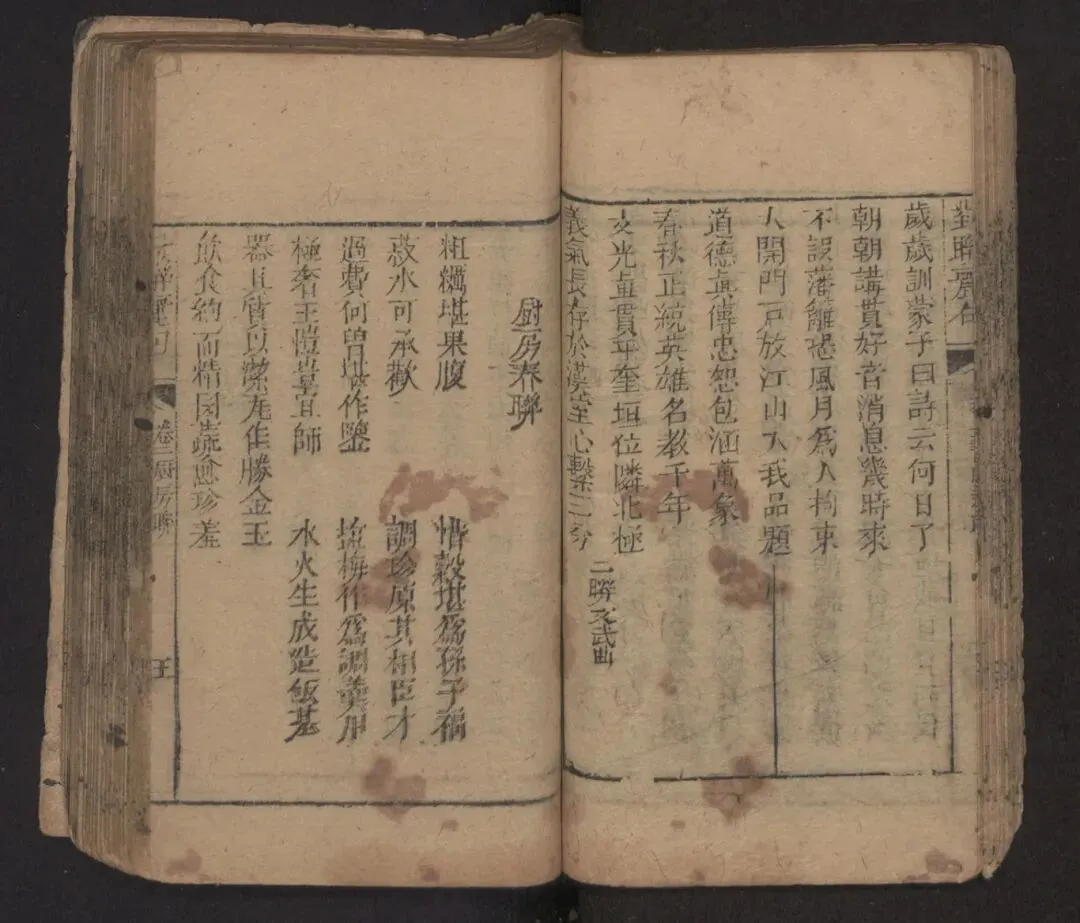 對聯
歲歲訓蒙子曰詩云何日了
朝朝講貫好音消息幾時來
不設藩籬恐風月為人拘束
大開門戶放江山入我品題
道德真傳忠恕包涵萬象
春秋正統英雄名教千年
文光直貫斗奎垣位隣北極
義氣長存於漢室心繫三分
二聯文武曲
厨房春聯
粗糲堪果腹
惜穀堪為孫子福
菽水可承歡
調珍原具相臣才
過費何曾堪作鑒
鹽梅作為調羹用
極奢王愷豈宜師
水火生成造飯基
器具質以潔瓦缶勝金玉
飲食約而精園蔬愈珍羞
卷二厨房聯